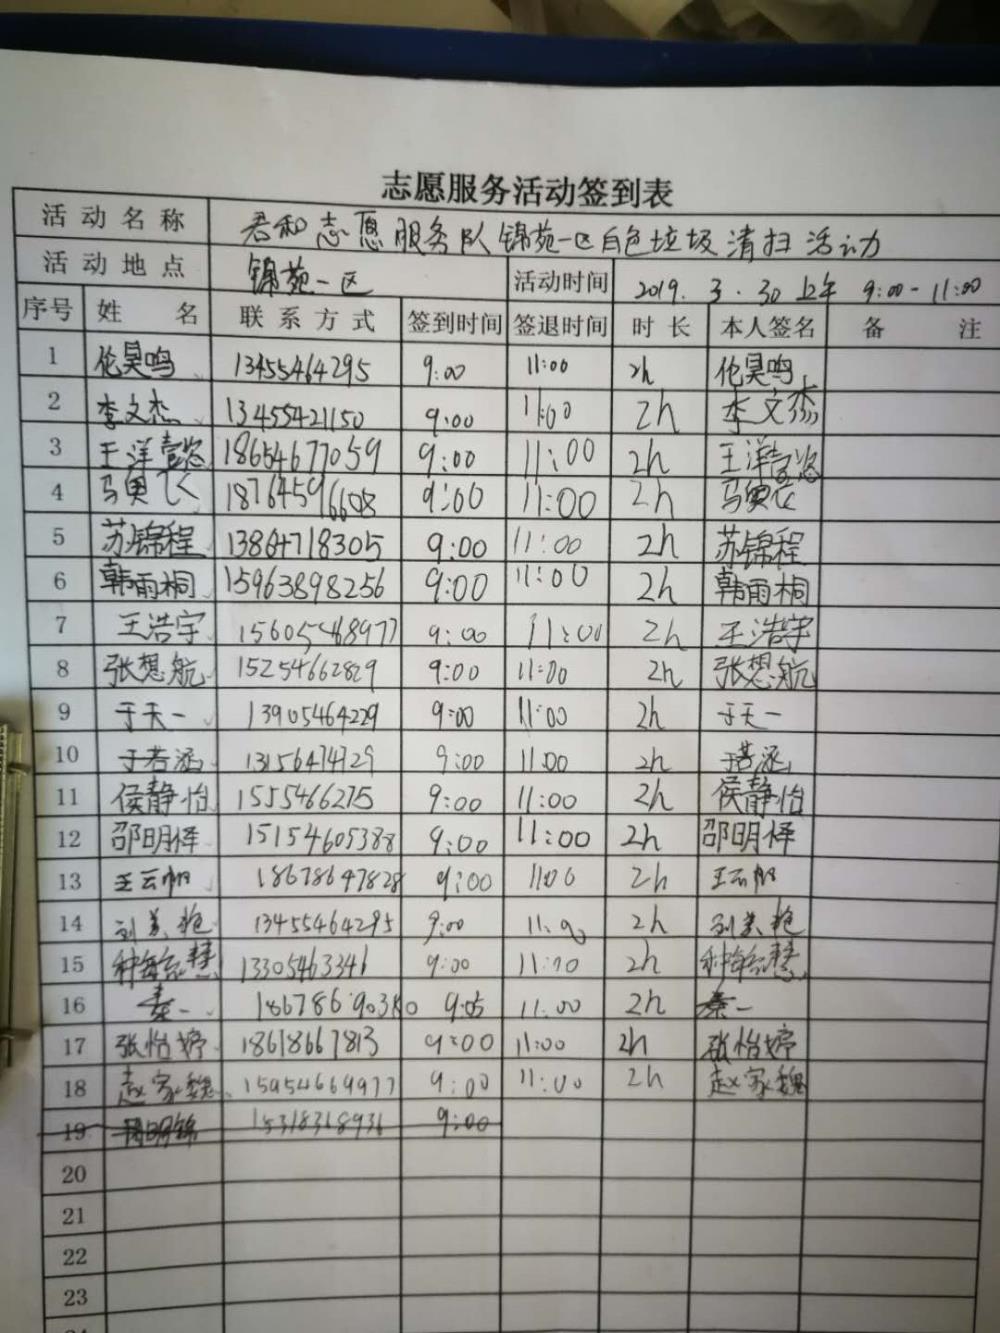 志愿服务活动签到表
活动名称 君和志愿服务队锦苑一区白色垃圾清扫活动
活动地点 锦苑一区 活动时间 2019.3.30 上午 9:00-11:00
序号 姓名 联系方式 签到时间 签退时间 时长 本人签名 备注
1 伦昊鸣 13455464295 9:00 11:00 2h 伦昊鸣
2 李文杰 13455421150 9:00 11:00 2h 李文杰
3 王洋壹悠 18654677059 9:00 11:00 2h 王洋壹悠
4 18764596608 9:00 11:00 2h
5 苏锦程 13864718305 9:00 11:00 2h 苏锦程
6 韩雨桐 15963898256 9:00 11:00 2h 韩雨桐
7 王浩宇 15605468977 9:00 11:00 2h 王浩宇
8 张想航 15254662829 9:00 11:00 2h 张想航
9 于天一 13905464229 9:00 11:00 2h 于天一
10 于若涵 9:00 11:00 2h 于若涵
11 侯静怡 1555466275 9:00 11:00 2h 侯静怡
12 邵明怿 15154605388 9:00 11:00 2h 邵明怿
13 王云帆 18678647828 9:00 11:00 2h 王云帆
14 13455464295 9:00 11:00 2h
15 13305463346 9:00 11:00 2h
16 秦一 18678690380 9:05 11:00 2h 秦一
17 张怡婷 18618667813 9:00 11:00 2h 张怡婷
18 赵家魏 15954669977 9:00 11:00 2h 赵家魏
19 周明锦 15318318931 9:00
20
21
22
23